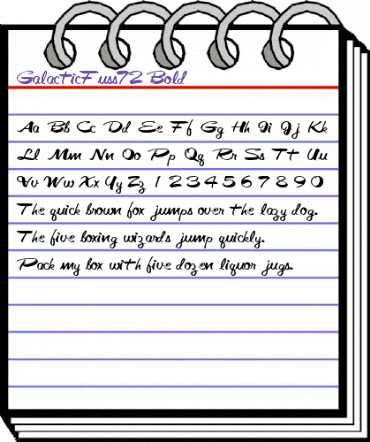 GalacticFuss72 Bold
Aa Bb Cc Dd Ee Ff Gg Hh Ii Jj Kk
Ll Mm Nn Oo Pp Qq Rr Ss Tt Uu
Vv Ww Xx Yy Zz 1 2 3 4 5 6 7 8 9 0
The quick brown fox jumps over the lazy dog.
The five boxing wizards jump quickly.
Pack my box with five dozen liquor jugs.